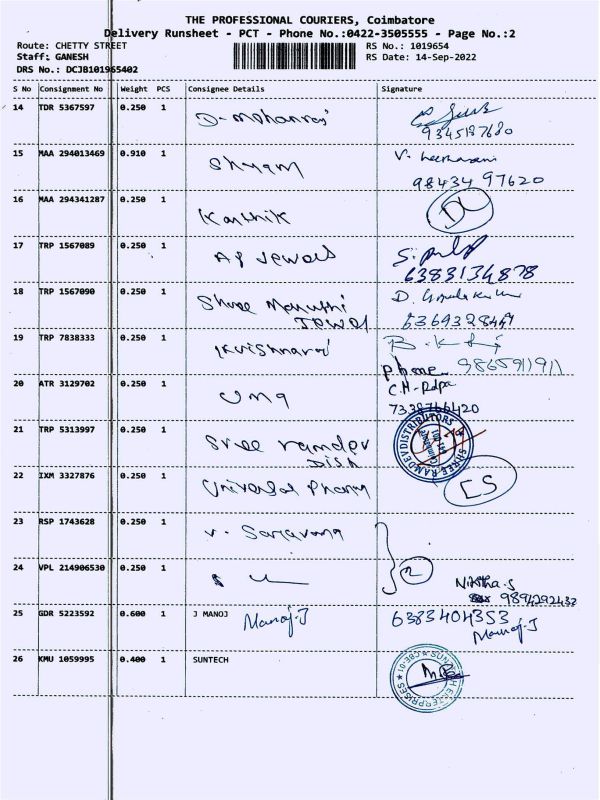 THE PROFESSIONAL COURIERS, Coimbatore
Delivery Runsheet - PCT - Phone No.:0422-3505555 - Page No.:2
Route: CHETTY STREET RS No.: 1019654
Staff: GANESH RS Date: 14-Sep-2022
DRS No.: DCJB101965402
S No Consignment No Weight PCS Consignee Details Signature
14 TDR 5367597 0.250 1 D- Mohanraj
9345187680
15 MAA 294013469 0.910 1 Shyam V.
98434 97620
16 MAA 294341287 0.250 1 Karthik
17 TRP 1567089 0.250 1 AJ Jewels S.
6383134878
18 TRP 1567090 0.250 1 Shree Maruthi D. Gopalakumar
Jewel 6369328461
19 TRP 7838333 0.250 1 B.K
Phone 9865911911
20 ATR 3129702 0.250 1 Uma C.H-
7338766420
21 TRP 5313997 0.250 1 Sree ramdev
Dish
SHREE RAMDEV DISTRIBUTORS
22 IXM 3327876 0.250 1 Universal Pharma ES
23 RSP 1743628 0.250 1 V. Saravana
24 VPL 214906530 0.250 1 2
Nikitha.S
9894292433
25 GDR 5223592 0.600 1 J MANOJ Manoj.J 6383404353
Manoj.J
26 KMU 1059995 0.400 1 SUNTECH
SUNTECH ENTERPRISES CBE-01